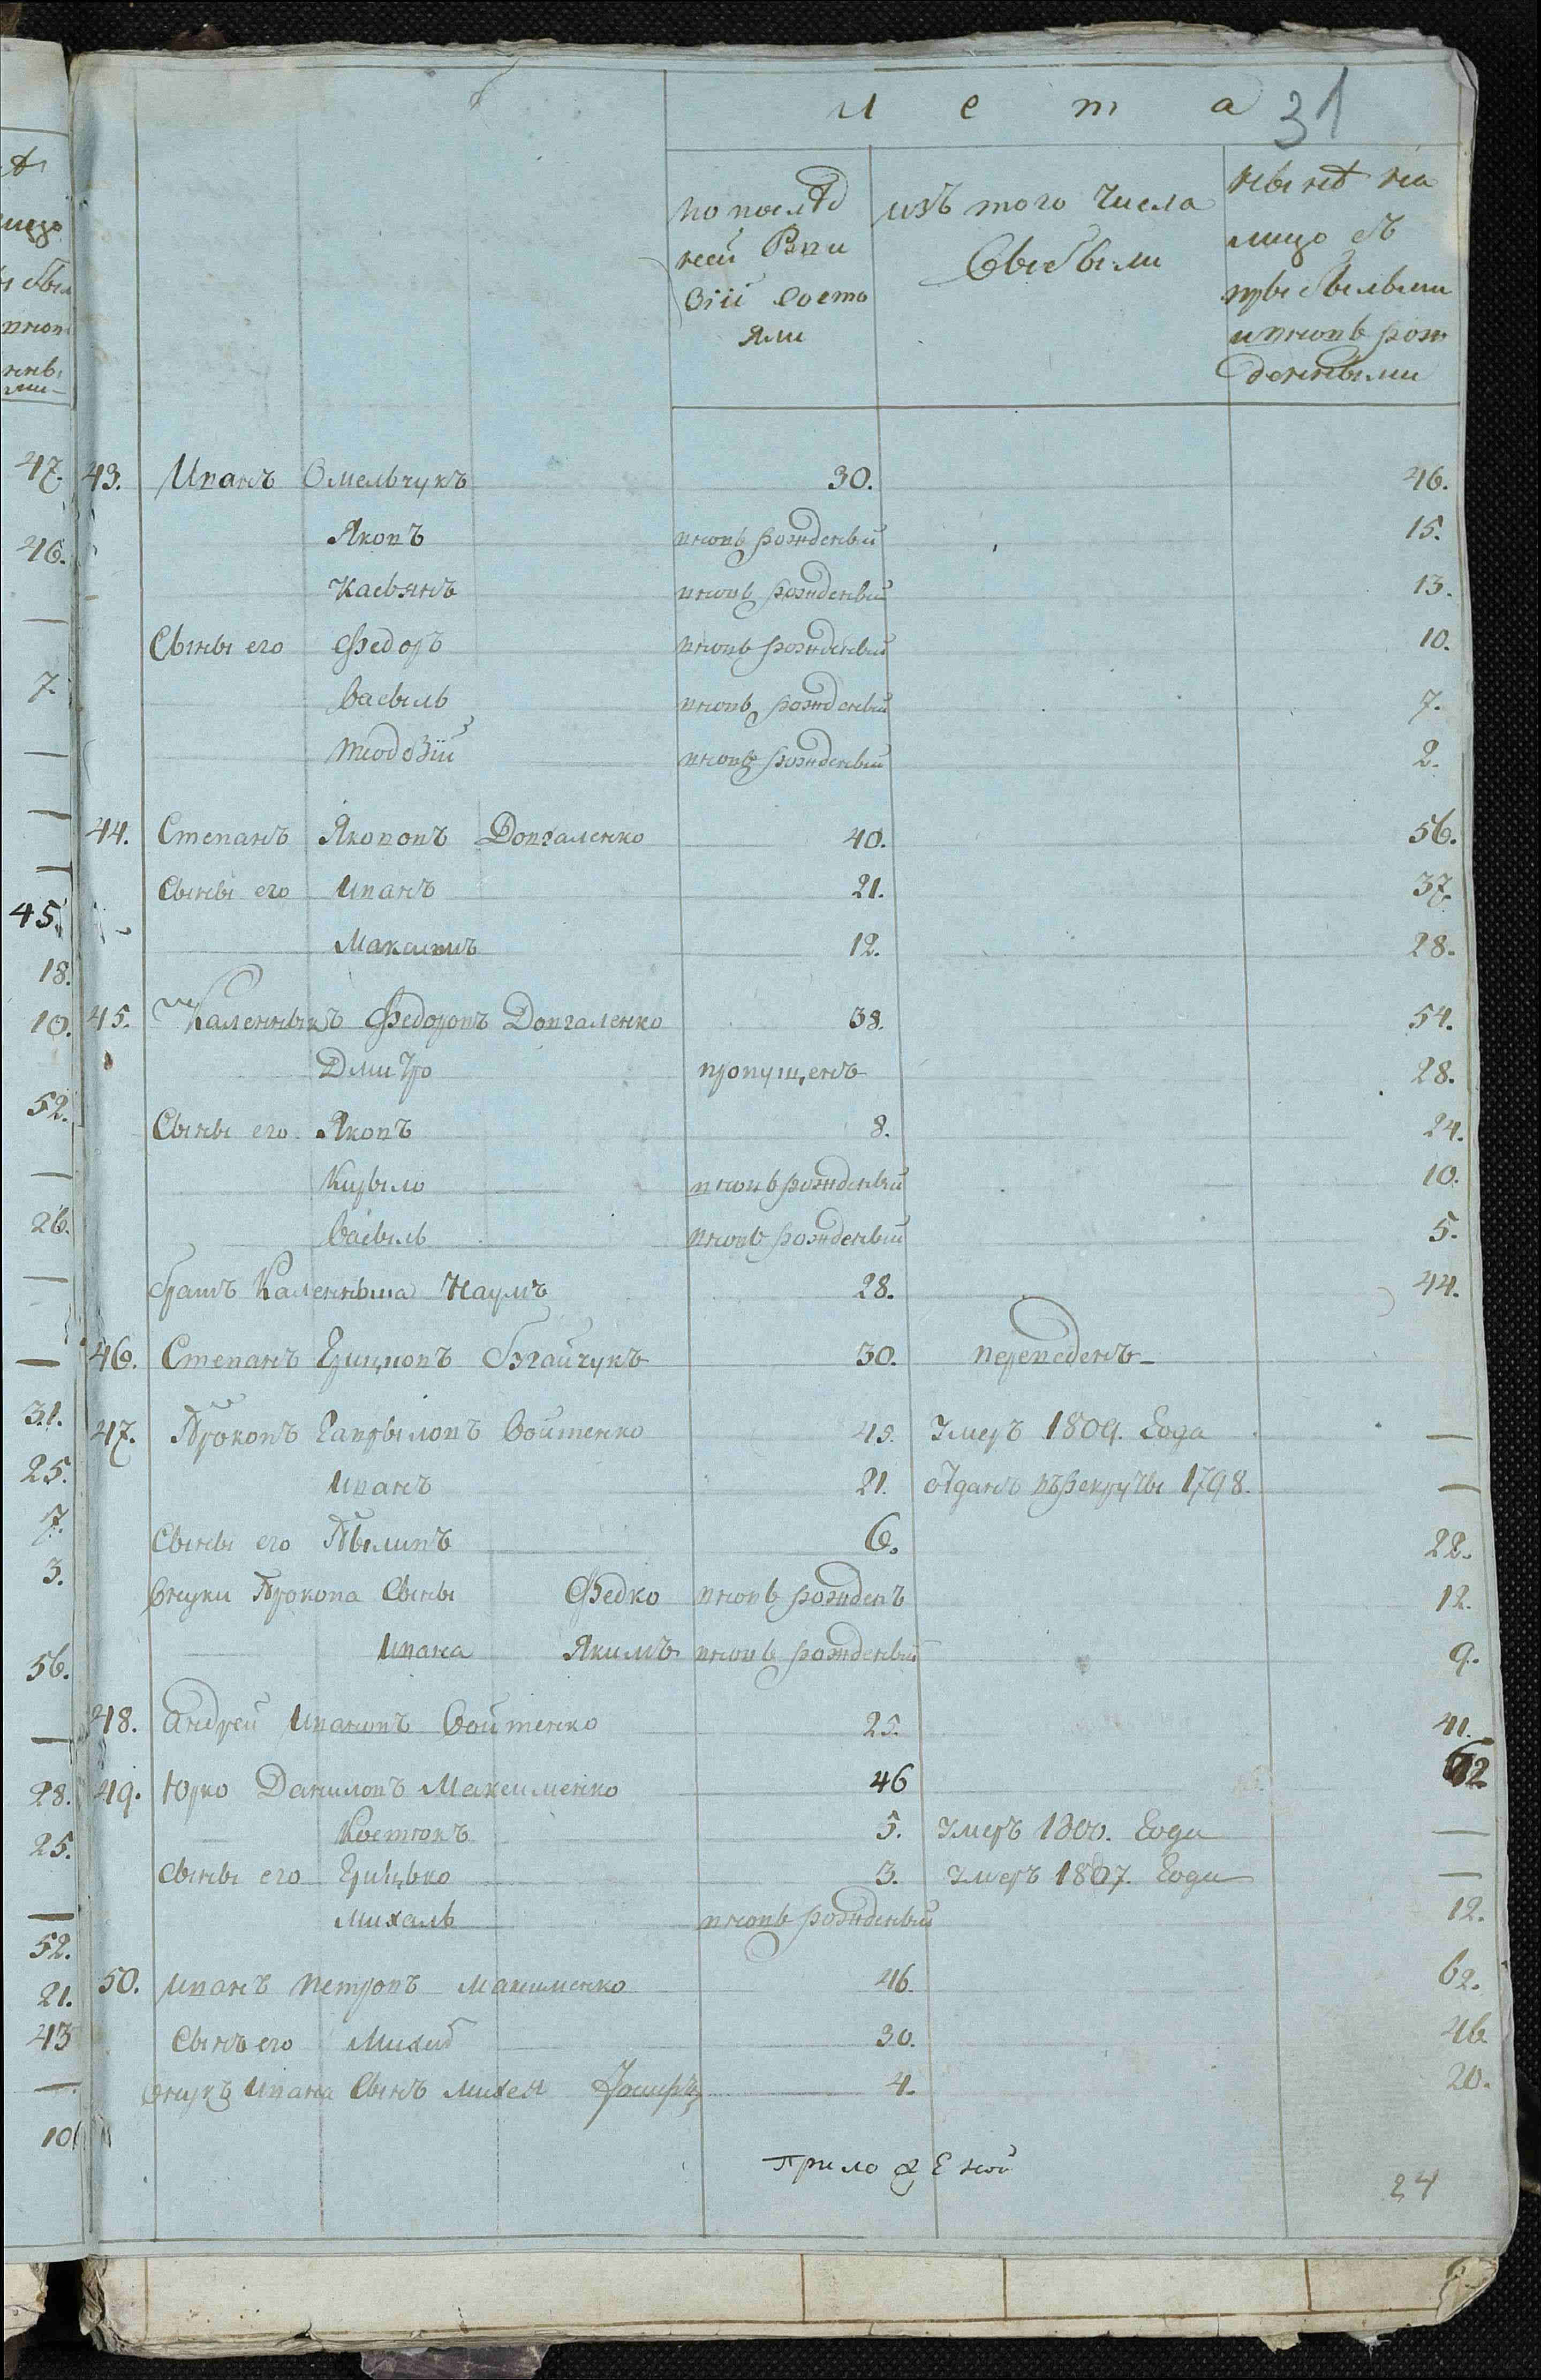 л е т а 31
по послѣд
ней Реви
зіи состо
яли
изъ того числа
Выбыли
нынѣ на
лицо съ
прыбылыми
и вновь рож
денными
43. Иванъ Омельчукъ 30. 46.
Яковъ вновь рожденый 15.
Касьянъ вновь рожденый 13.
Сыны его Федоръ вновь рожденый 10.
Васыль вновь рожденый 7.
Тиодозій вновь рожденый 2.
44. Степанъ Якововъ Довгаленко 40. 56.
Сыны его Иванъ 21. 37.
Максимъ 12. 28.
45. Каленныкъ Федоровъ Довгаленко 38. 54.
Дмитро пропущенъ 28.
Сыны его Яковъ 8. 24.
Кирыло вновь рожденый 10.
Васыль вновь рожденый 5.
братъ Каленныка Наумъ 28. 44.
46. Степанъ Грицковъ Бгайчукъ 30. переведенъ
47. Прокопъ Гаврыловъ Войтенко 45. Умеръ 1809. Года —
Иванъ 21. отданъ въ рекруты 1798. —
Сыны его Пылипъ 6. 22.
Внуки Прокопа Сыны Федко вновь рожденъ 12.
Ивана Якимъ вновь рожденый 9.
48. Андрей Ивановъ Войтенко 25. 41.
49. Юрко Даниловъ Максименко 46 62
Костюкъ 5. Умеръ 1800. Года —
Сыны его Грицько 3. Умеръ 1807. Года —
Михаль вновь рожденый 12.
50. Иванъ Петровъ Максименко 46. 62.
Сынъ его Михей 30. 46
Внукъ Ивана Сынъ Михея Іосифъ 4. 20.
приложеной
24
47.
46.
—
7.
—
—
—
45.
18.
10.
52.
—
26.
—
—
31.
25.
7.
3.
56.
—
28.
25.
—
52.
21.
43
—
10